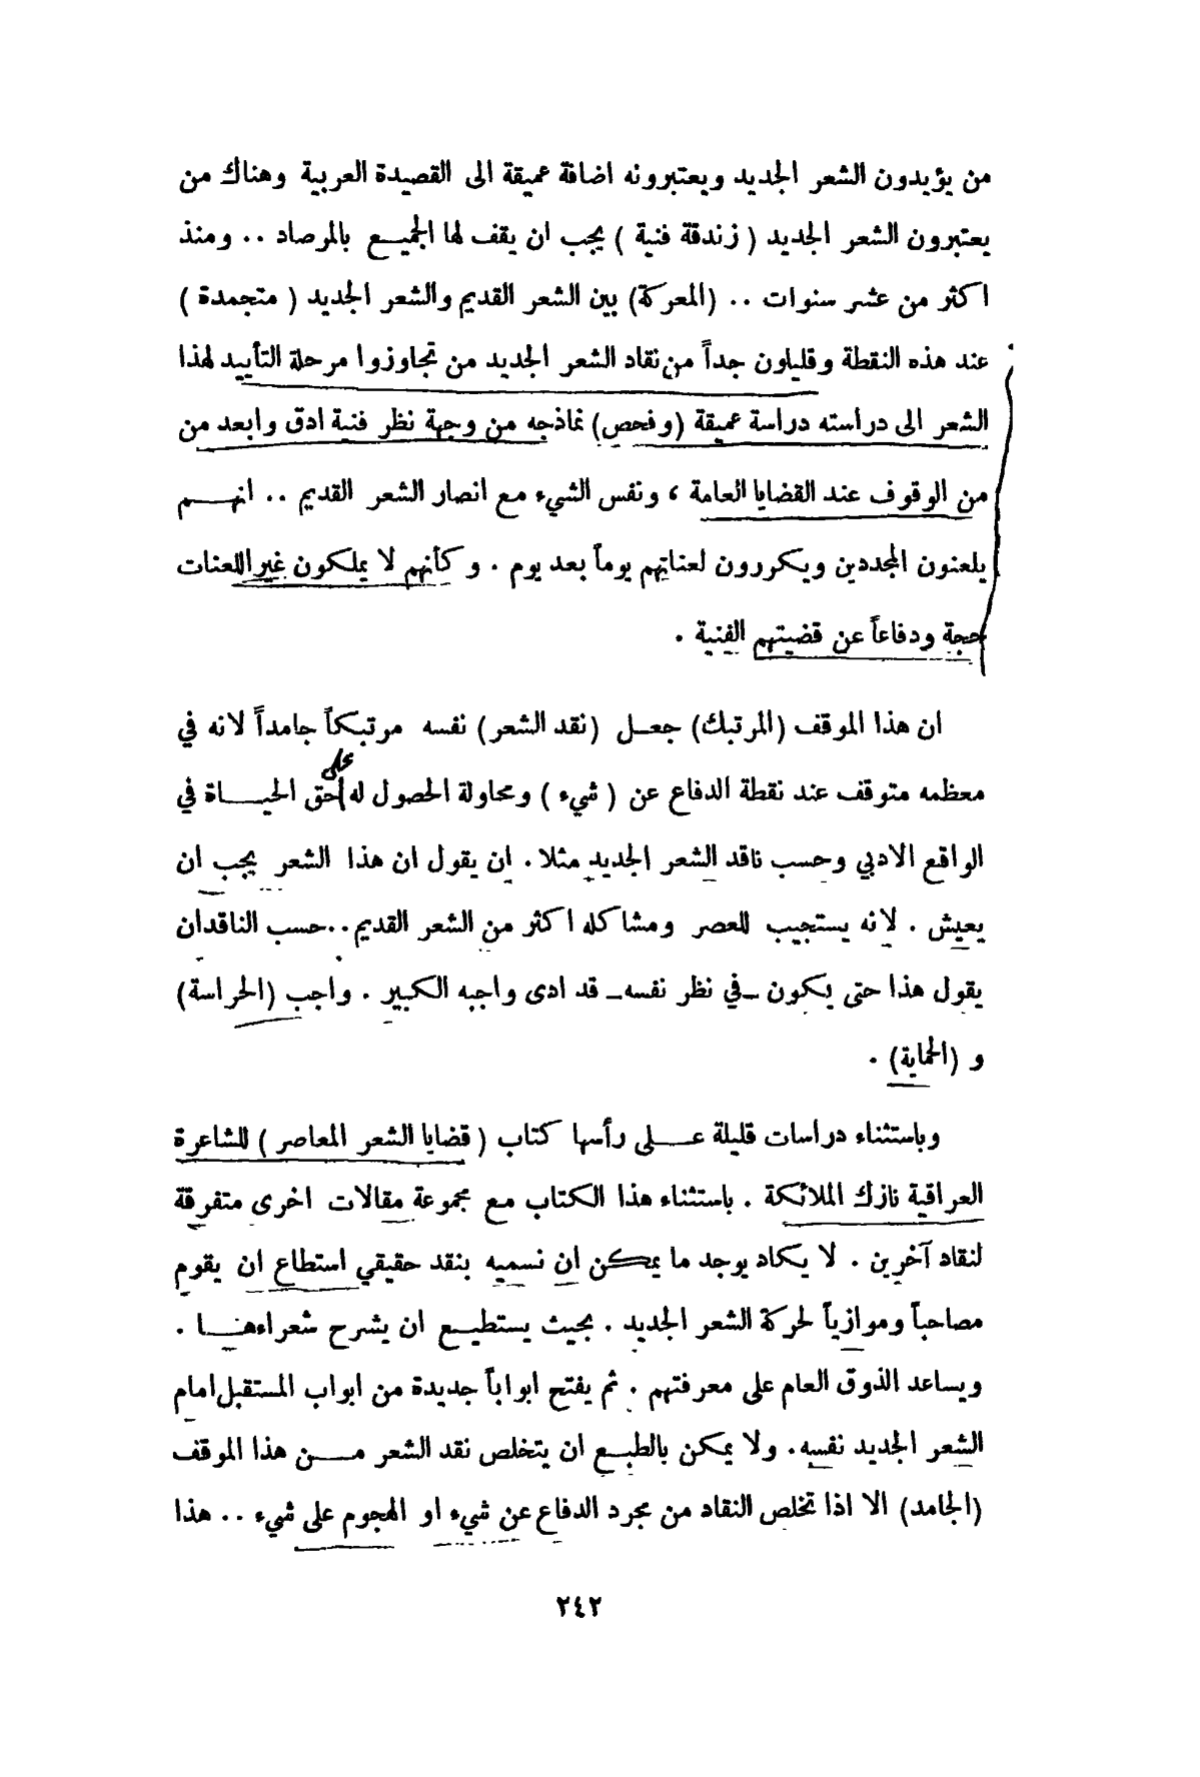 من يؤيدون الشعر الجديد ويعتبرونه اضافة عميقة الى القصيدة العربية وهناك من
يعتبرون الشعر الجديد ( زندقة فنية ) يجب ان يقف لها الجميع بالمرصاد .. ومنذ
اكثر من عشر سنوات .. (المعركة) بين الشعر القديم والشعر الجديد ( متجمدة )
عند هذه النقطة وقليلون جداً من نقاد الشعر الجديد من تجاوزوا مرحلة التأييد لهذا
الشعر الى دراسته دراسة عميقة (وفحص) نماذجه من وجهة نظر فنية ادق وابعد من
من الوقوف عند القضايا العامة ، ونفس الشيء مع انصار الشعر القديم .. انهم
يلعنون المجددين ويكررون لعناتهم يوماً بعد يوم . وكأنهم لا يملكون غير اللعنات
حجة ودفاعاً عن قضيتهم الفنية .
ان هذا الموقف (المرتبك) جعل (نقد الشعر) نفسه مرتبكاً جامداً لانه في
على
معظمه متوقف عند نقطة الدفاع عن ( شيء ) ومحاولة الحصول له حق الحياة في
الواقع الادبي وحسب ناقد الشعر الجديد مثلا . ان يقول ان هذا الشعر يجب ان
يعيش . لانه يستجيب للعصر ومشاكله اكثر من الشعر القديم..حسب الناقدان
يقول هذا حتى يكون -في نظر نفسه- قد ادى واجبه الكبير . واجب (الحراسة)
و (الحماية) .
وباستثناء دراسات قليلة على رأسها كتاب ( قضايا الشعر المعاصر ) للشاعرة
العراقية نازك الملائكة . باستثناء هذا الكتاب مع مجموعة مقالات اخرى متفرقة
لنقاد آخرين . لا يكاد يوجد ما يمكن ان نسميه بنقد حقيقي استطاع ان يقوم
مصاحباً وموازياً لحركة الشعر الجديد . بحيث يستطيع ان يشرح شعراءها .
ويساعد الذوق العام على معرفتهم . ثم يفتح ابواباً جديدة من ابواب المستقبل امام
الشعر الجديد نفسه . ولا يمكن بالطبع ان يتخلص نقد الشعر من هذا الموقف
(الجامد) الا اذا تخلص النقاد من مجرد الدفاع عن شيء او الهجوم على شيء .. هذا
٢٤٢